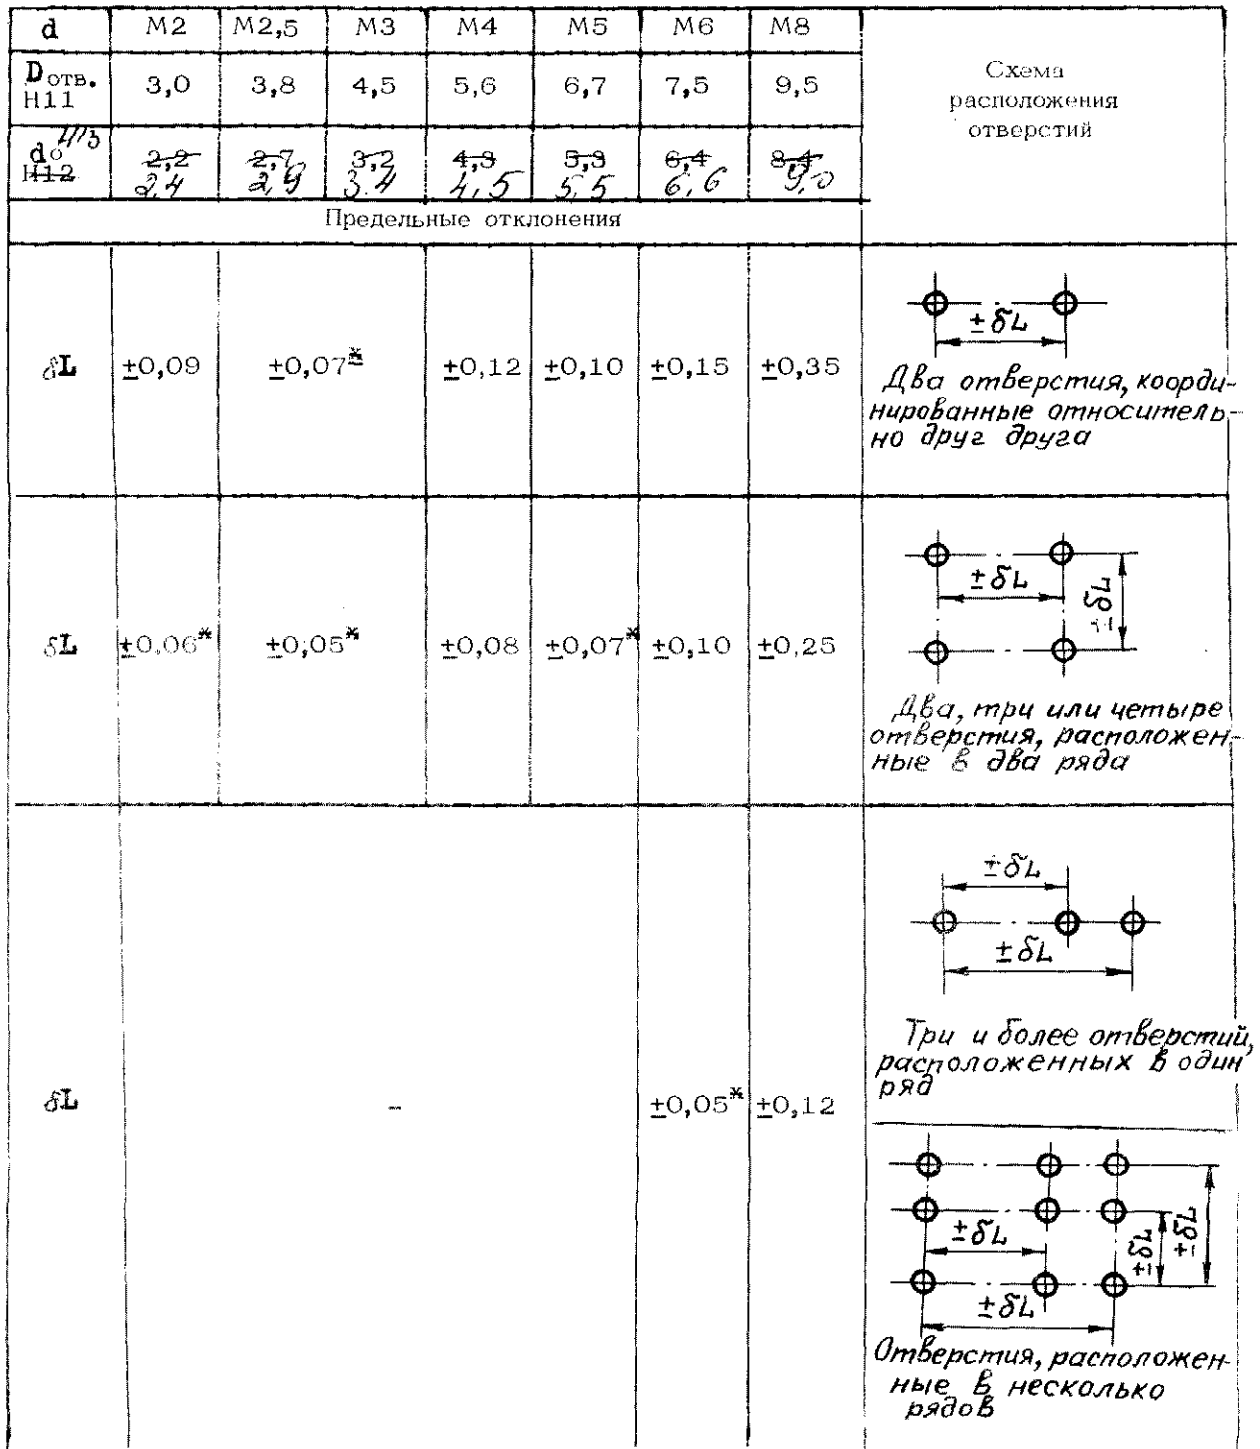 d М2 М2,5 М3 М4 М5 М6 М8
Dотв. 3,0 3,8 4,5 5,6 6,7 7,5 9,5
Н11
Схема
расположения
отверстий
do 2,2 2,7 3,2 4,3 5,3 6,4 8,4
Н12 2,4 2,9 3.4 4,5 5,5 6,6 9,0
Предельные отклонения
δL ±0,09 ±0,07* ±0,12 ±0,10 ±0,15 ±0,35
±δL
Два отверстия, коорди-
нированные относитель-
но друг друга
δL ±0,06* ±0,05* ±0,08 ±0,07* ±0,10 ±0,25
±δL
±δL
Два, три или четыре
отверстия, расположен-
ные в два ряда
δL – ±0,05* ±0,12
±δL
±δL
Три и более отверстий,
расположенных в один
ряд
±δL
±δL
±δL
±δL
Отверстия, расположен-
ные в несколько
рядов